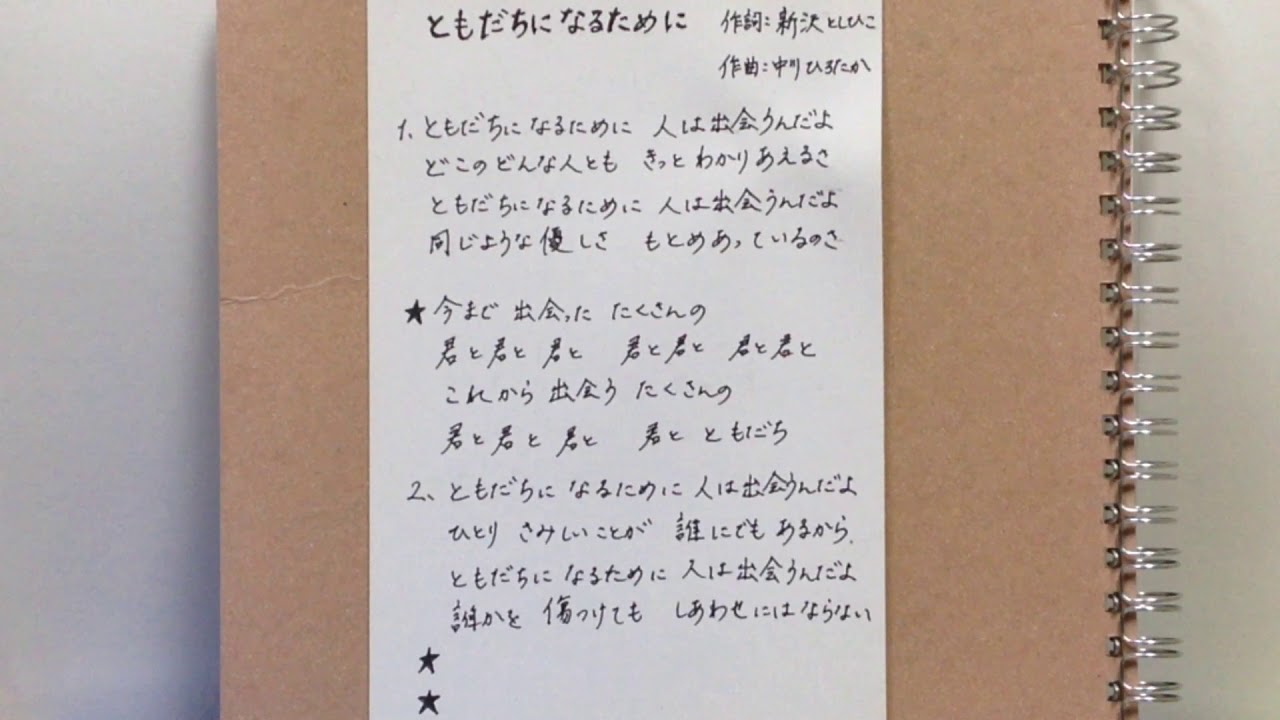 ともだちになるために 作詞:新沢としひこ
作曲:中川ひろたか
1. ともだちに なるために 人は出会うんだよ
どこの どんな人とも きっと わかりあえるさ
ともだちに なるために 人は出会うんだよ
同じような 優しさ もとめあっているのさ
★ 今まで 出会った たくさんの
君と 君と 君と 君と 君と 君と 君と
これから 出会う たくさんの
君と 君と 君と 君と ともだち
2、ともだちに なるために 人は出会うんだよ
ひとり さみしいことが 誰にでも あるから
ともだちに なるために 人は出会うんだよ
誰かを 傷つけても しあわせには ならない
★
★